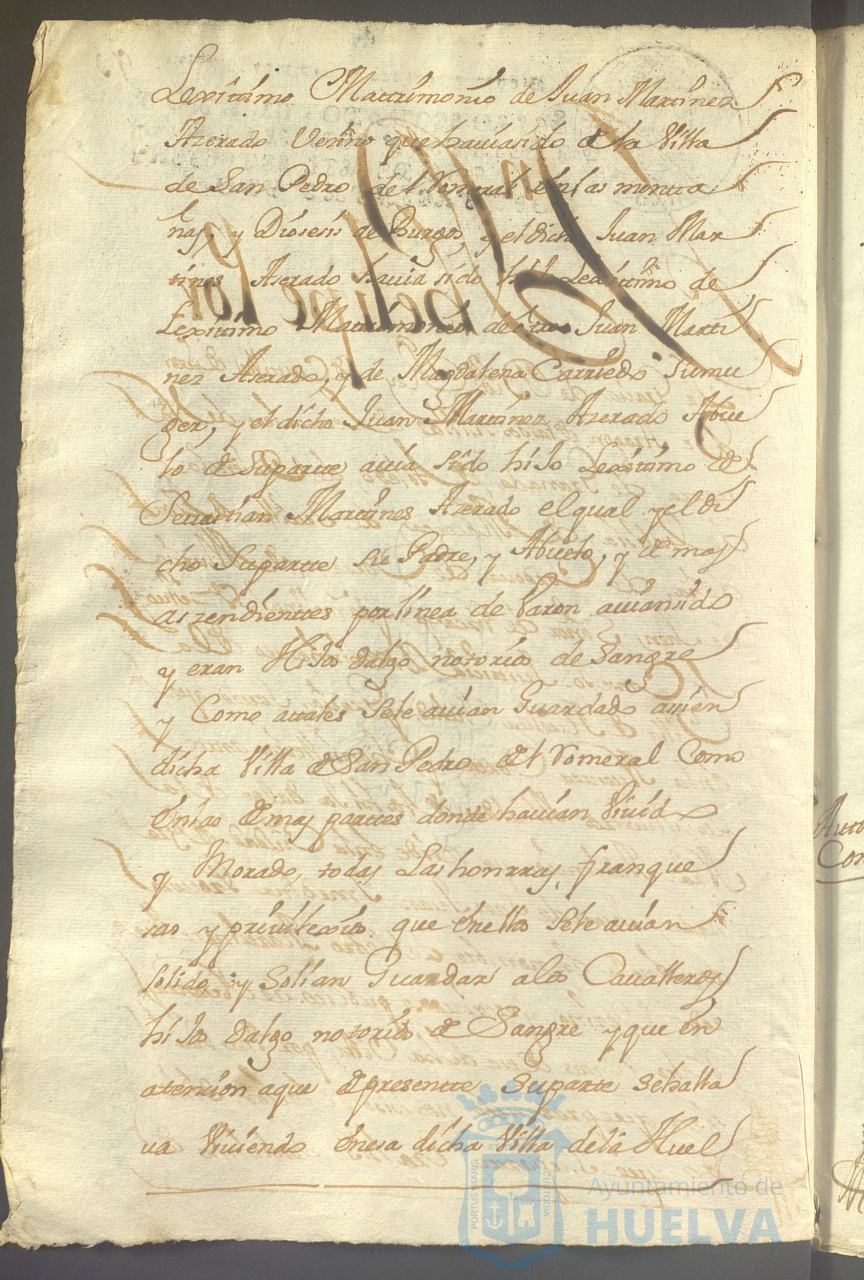 Lexittimo Mattrimonio de Juan Martinez
Azerado Vezino que hauiasido de la Villa
de San Pedro del Romeral en las monta
nas, y Diosesis de Burgos, y el dicho Juan Mar
tines Azerado hauia sido hijo Lexitimo de
Lexitimo Mattrimonio de otro Juan Marti
nez Azerado, y de Magdalena Carriedo Sumu
ger, y el dicho Juan Martinez Azerado Abue
lo de Suparte auia sido hijo Lexitimo de
Seuastian Martines Azerado el qual y el di
cho Suparte Su Padre, y Abuelo, y demas
aszendientes por linea de Varon auiansido
y eran Hijos dalgo notorios de Sangre
y Como atales Sele auian Guardado asi en
dicha Villa de San Pedro del Romeral Como
en las demas partes donde hauian Viuido
y Morado, todas Las honrras, franque
sas y priuilexios que en ella Sele auian
Solido y Solian Guardar a los Caualleros
hijos dalgo notorios de Sangre y que en
atension a que de presente Suparte Sehalla
ua Viuiendo en esa dicha Villa de la Huel
Ayuntamiento de
HUELVA